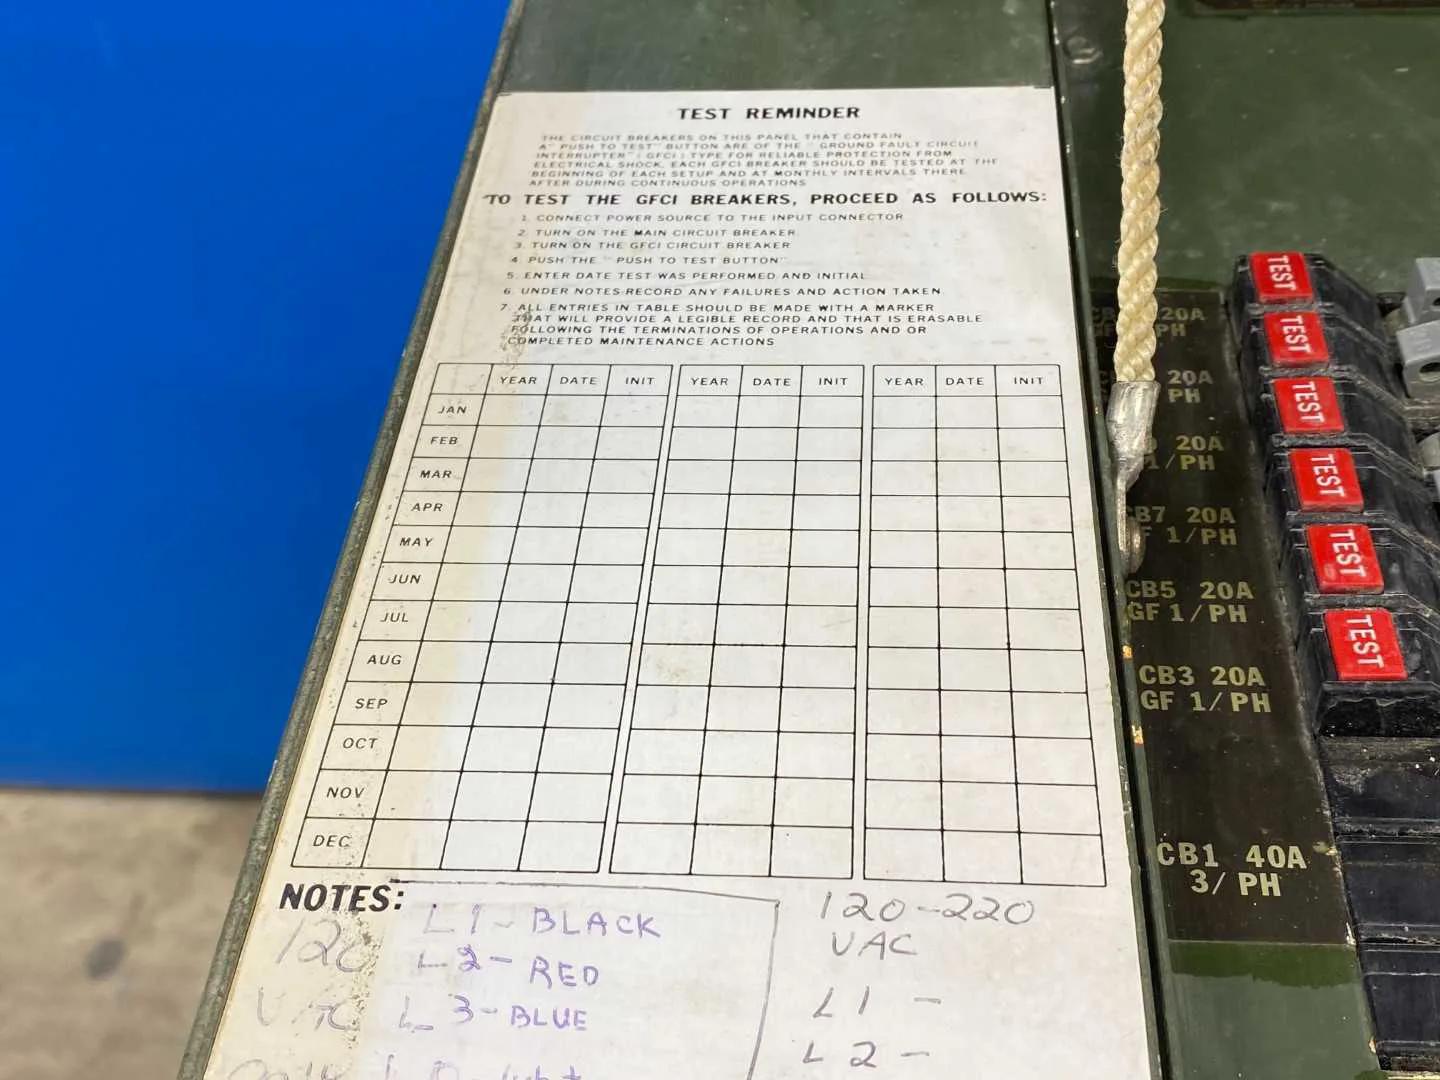 TEST REMINDER
THE CIRCUIT BREAKERS ON THIS PANEL THAT CONTAIN
A" PUSH TO TEST" BUTTON ARE OF THE " GROUND FAULT CIRCUIT
INTERRUPTER" ( GFCI ) TYPE FOR RELIABLE PROTECTION FROM
ELECTRICAL SHOCK, EACH GFCI BREAKER SHOULD BE TESTED AT THE
BEGINNING OF EACH SETUP AND AT MONTHLY INTERVALS THERE
AFTER DURING CONTINUOUS OPERATIONS
TO TEST THE GFCI BREAKERS, PROCEED AS FOLLOWS:
1. CONNECT POWER SOURCE TO THE INPUT CONNECTOR
2. TURN ON THE MAIN CIRCUIT BREAKER
3. TURN ON THE GFCI CIRCUIT BREAKER
4. PUSH THE " PUSH TO TEST BUTTON"
5. ENTER DATE TEST WAS PERFORMED AND INITIAL
6. UNDER NOTES RECORD ANY FAILURES AND ACTION TAKEN
7. ALL ENTRIES IN TABLE SHOULD BE MADE WITH A MARKER
THAT WILL PROVIDE A LEGIBLE RECORD AND THAT IS ERASABLE
FOLLOWING THE TERMINATIONS OF OPERATIONS AND OR
COMPLETED MAINTENANCE ACTIONS
YEAR DATE INIT YEAR DATE INIT YEAR DATE INIT
JAN
FEB
MAR
APR
MAY
JUN
JUL
AUG
SEP
OCT
NOV
DEC
NOTES:
120
VAC
L1- BLACK
L2- RED
L3- BLUE
120-220
VAC
L1 -
L2 -
20A
1/PH
20A
PH
20A
1/PH
CB7 20A
1/PH
CB5 20A
GF 1/PH
CB3 20A
GF 1/PH
CB1 40A
3/ PH
TEST
TEST
TEST
TEST
TEST
TEST